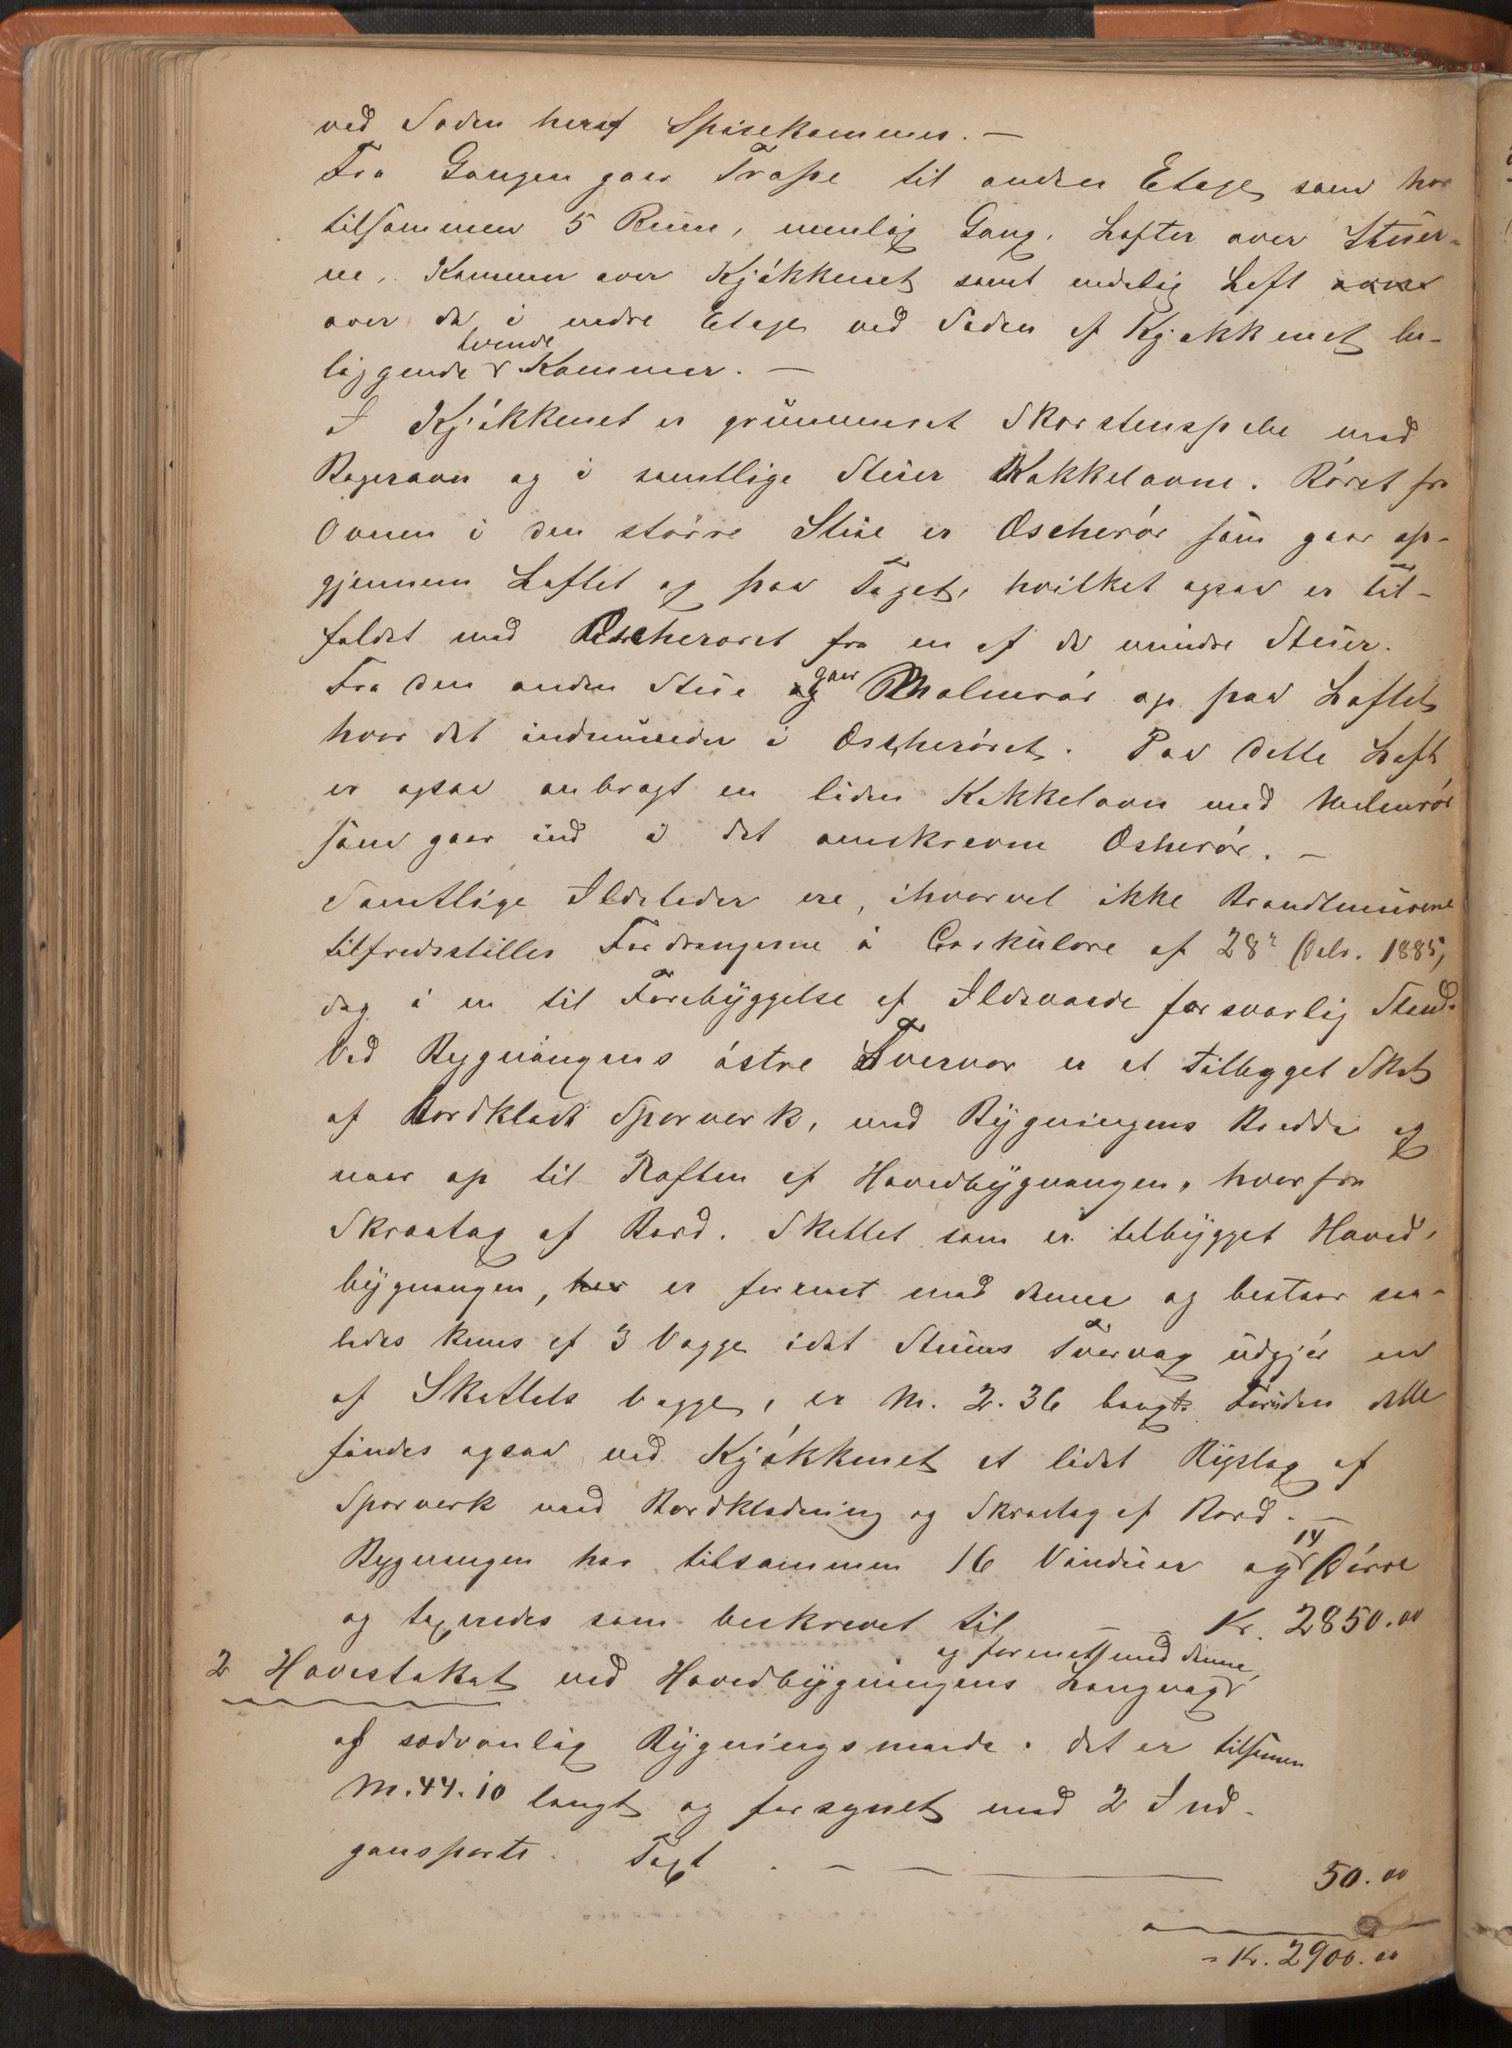 ved Siden heraf Spisekammer. —
Fra Gangen gaar Trappe til anden Etage som har
tilsammen 5 Rum, nemlig Gang, Lofter over Stuer-
ne, Kammer over Kjøkkenet samt endelig Loft
over de i nedre Etage ved Siden af Kjøkkenet be-
liggende tvende Kammer. —
I Kjøkkenet er grundmuret Skorstenspibe med
Bagerovn og i samtlige Stuer Kakkelovne. Røret fra
Ovnen i den større Stue er Oscherør som gaar op-
gjennem Loftet og paa Taget, hvilket ogsaa er Til-
fældet med Oscherøret fra en af de mindre Stuer.
Fra den anden Stue gaar Malmrør op paa Loftet
hvor det indmunder i Oscherøret. Paa dette Loft
er ogsaa anbragt en liden Kakkelovn med Malmrør
som gaar ind i det omskrevne Osherør. —
Samtlige Ildsteder ere, ihvorvel ikke Brandmurene
tilfredsstiller Fordringerne i Cirkulære af 28de Decb. 1885,
dog i en til Forebyggelse af Ildsvaade forsvarlig Stand.
Ved Bygningens østre Tvervæg er et tilbygget Skot
af bordklædt Spærverk, med Bygningens Bredde og
naar op til Raften af Hovedbygningen, hvorfra
Skraatag af Bord. Skottet som er tilbygget Hoved-
bygningen, er forenet med denne og bestaar saa-
ledes kuns af 3 Vægge idet Stuens Tvervæg udgjør en
af Skottets Vægge, er M. 2.36 langt. Foruden dette
findes ogsaa ved Kjøkkenet et lidet Bislag af
Spærverk med Bordklædning og Skraatag af Bord. —
Bygningen har tilsammen 16 Vinduer og 14 Dørre
og taxeredes som beskrevet til — — Kr. 2850.00
2 Havestaket ved Hovedbygningens Langvæg og forenet med denne,
af sædvanlig Bygningsmaade. Det er tilsammen
M. 44.10 langt og forsynet med 2 Ind-
gangsporte. Taxt . — — — 50.00
= Kr. 2900.00